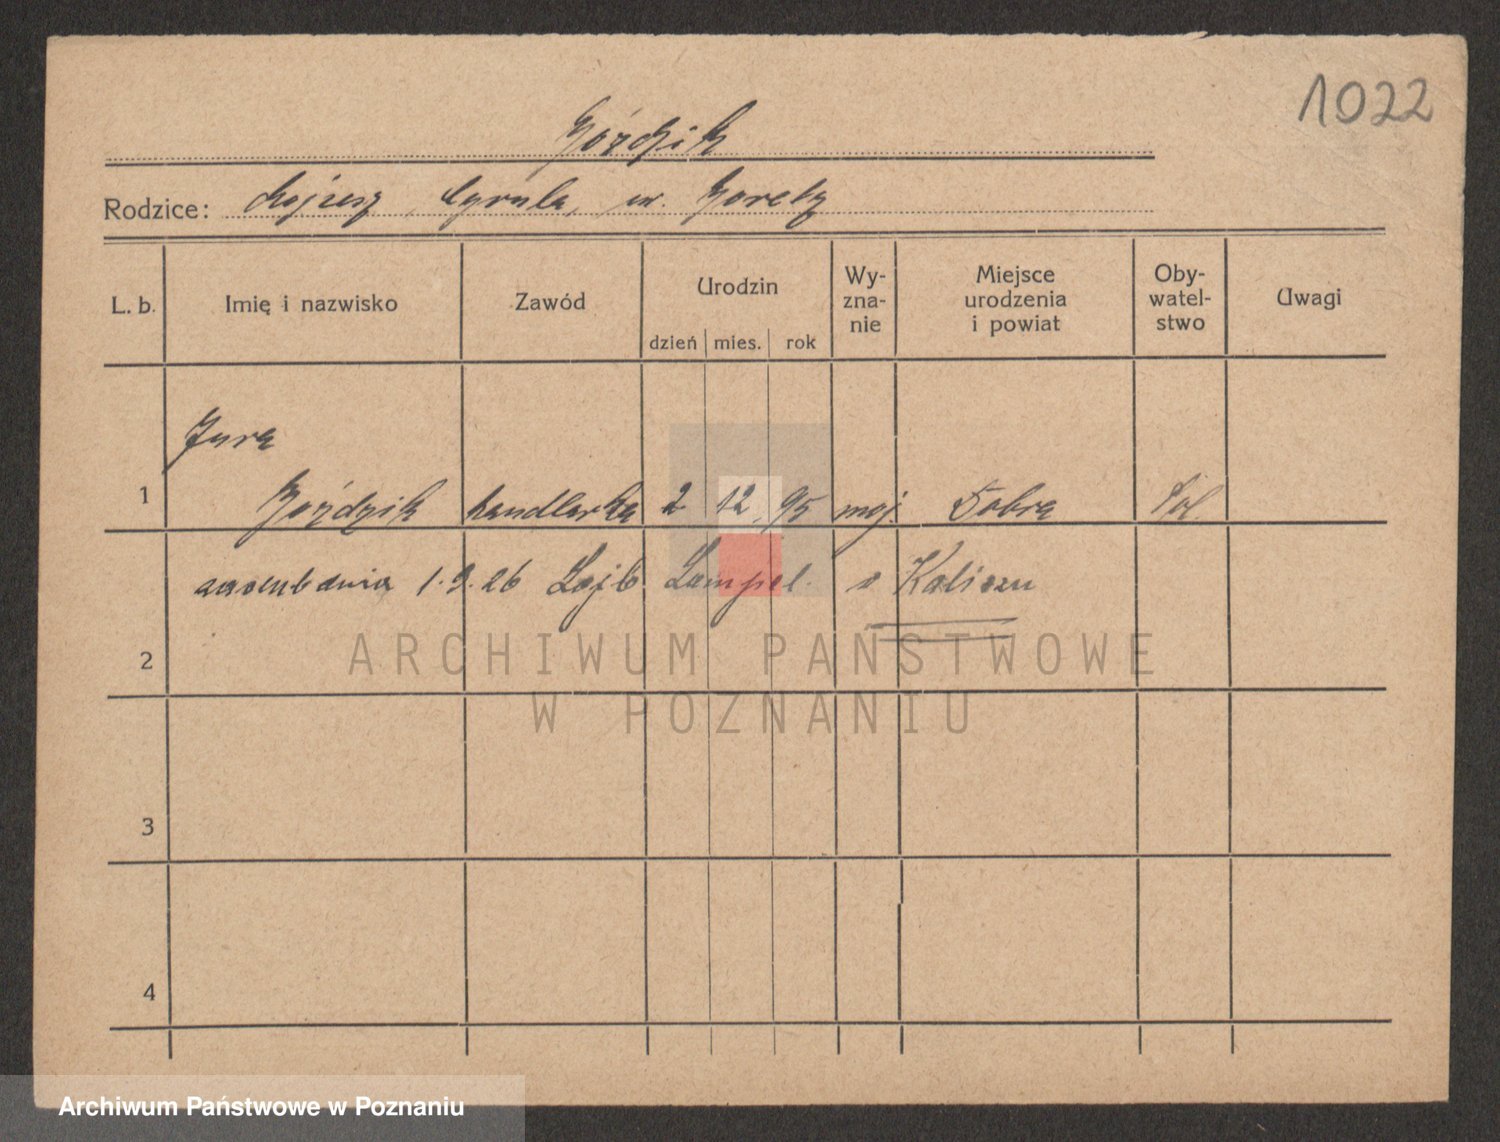 1022
Góździk
Rodzice: Mojżesz, Cyrula, ur. Gorety
L. b.
Imię i nazwisko
Zawód
Urodzin
dzień mies. rok
Wy-
zna-
nie
Miejsce
urodzenia
i powiat
Oby-
watel-
stwo
Uwagi
Jura
1 Góździk handlarka 2 12. 95 mojż. Dobra Pol.
dnia 1.9.26 Lajb Lampel. z Kaliszu
2
3
4
ARCHIWUM PAŃSTWOWE
W POZNANIU
Archiwum Państwowe w Poznaniu